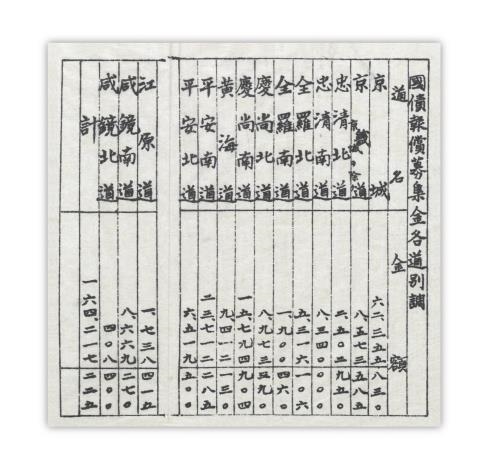 國債報償募集金各道別調
道名 金額
京城 六二、三五五八三〇
京畿道 京城ヲ除ク 八、五七三五八五
忠清北道 二、五〇二九五〇
忠清南道 八、三四〇〇〇〇
全羅北道 五、三一六一〇六
全羅南道 一、九〇〇四六〇
慶尚北道 八、九七三
慶尚南道 一五、七九四九〇四
黃海道 九、四一二一三〇
平安南道 二三、七一二二八五
平安北道 六、五一九五〇〇
江原道 一、七三八四一五
咸鏡南道 八、六六九二七〇
咸鏡北道 四〇八
計 一六四、二一七二二五